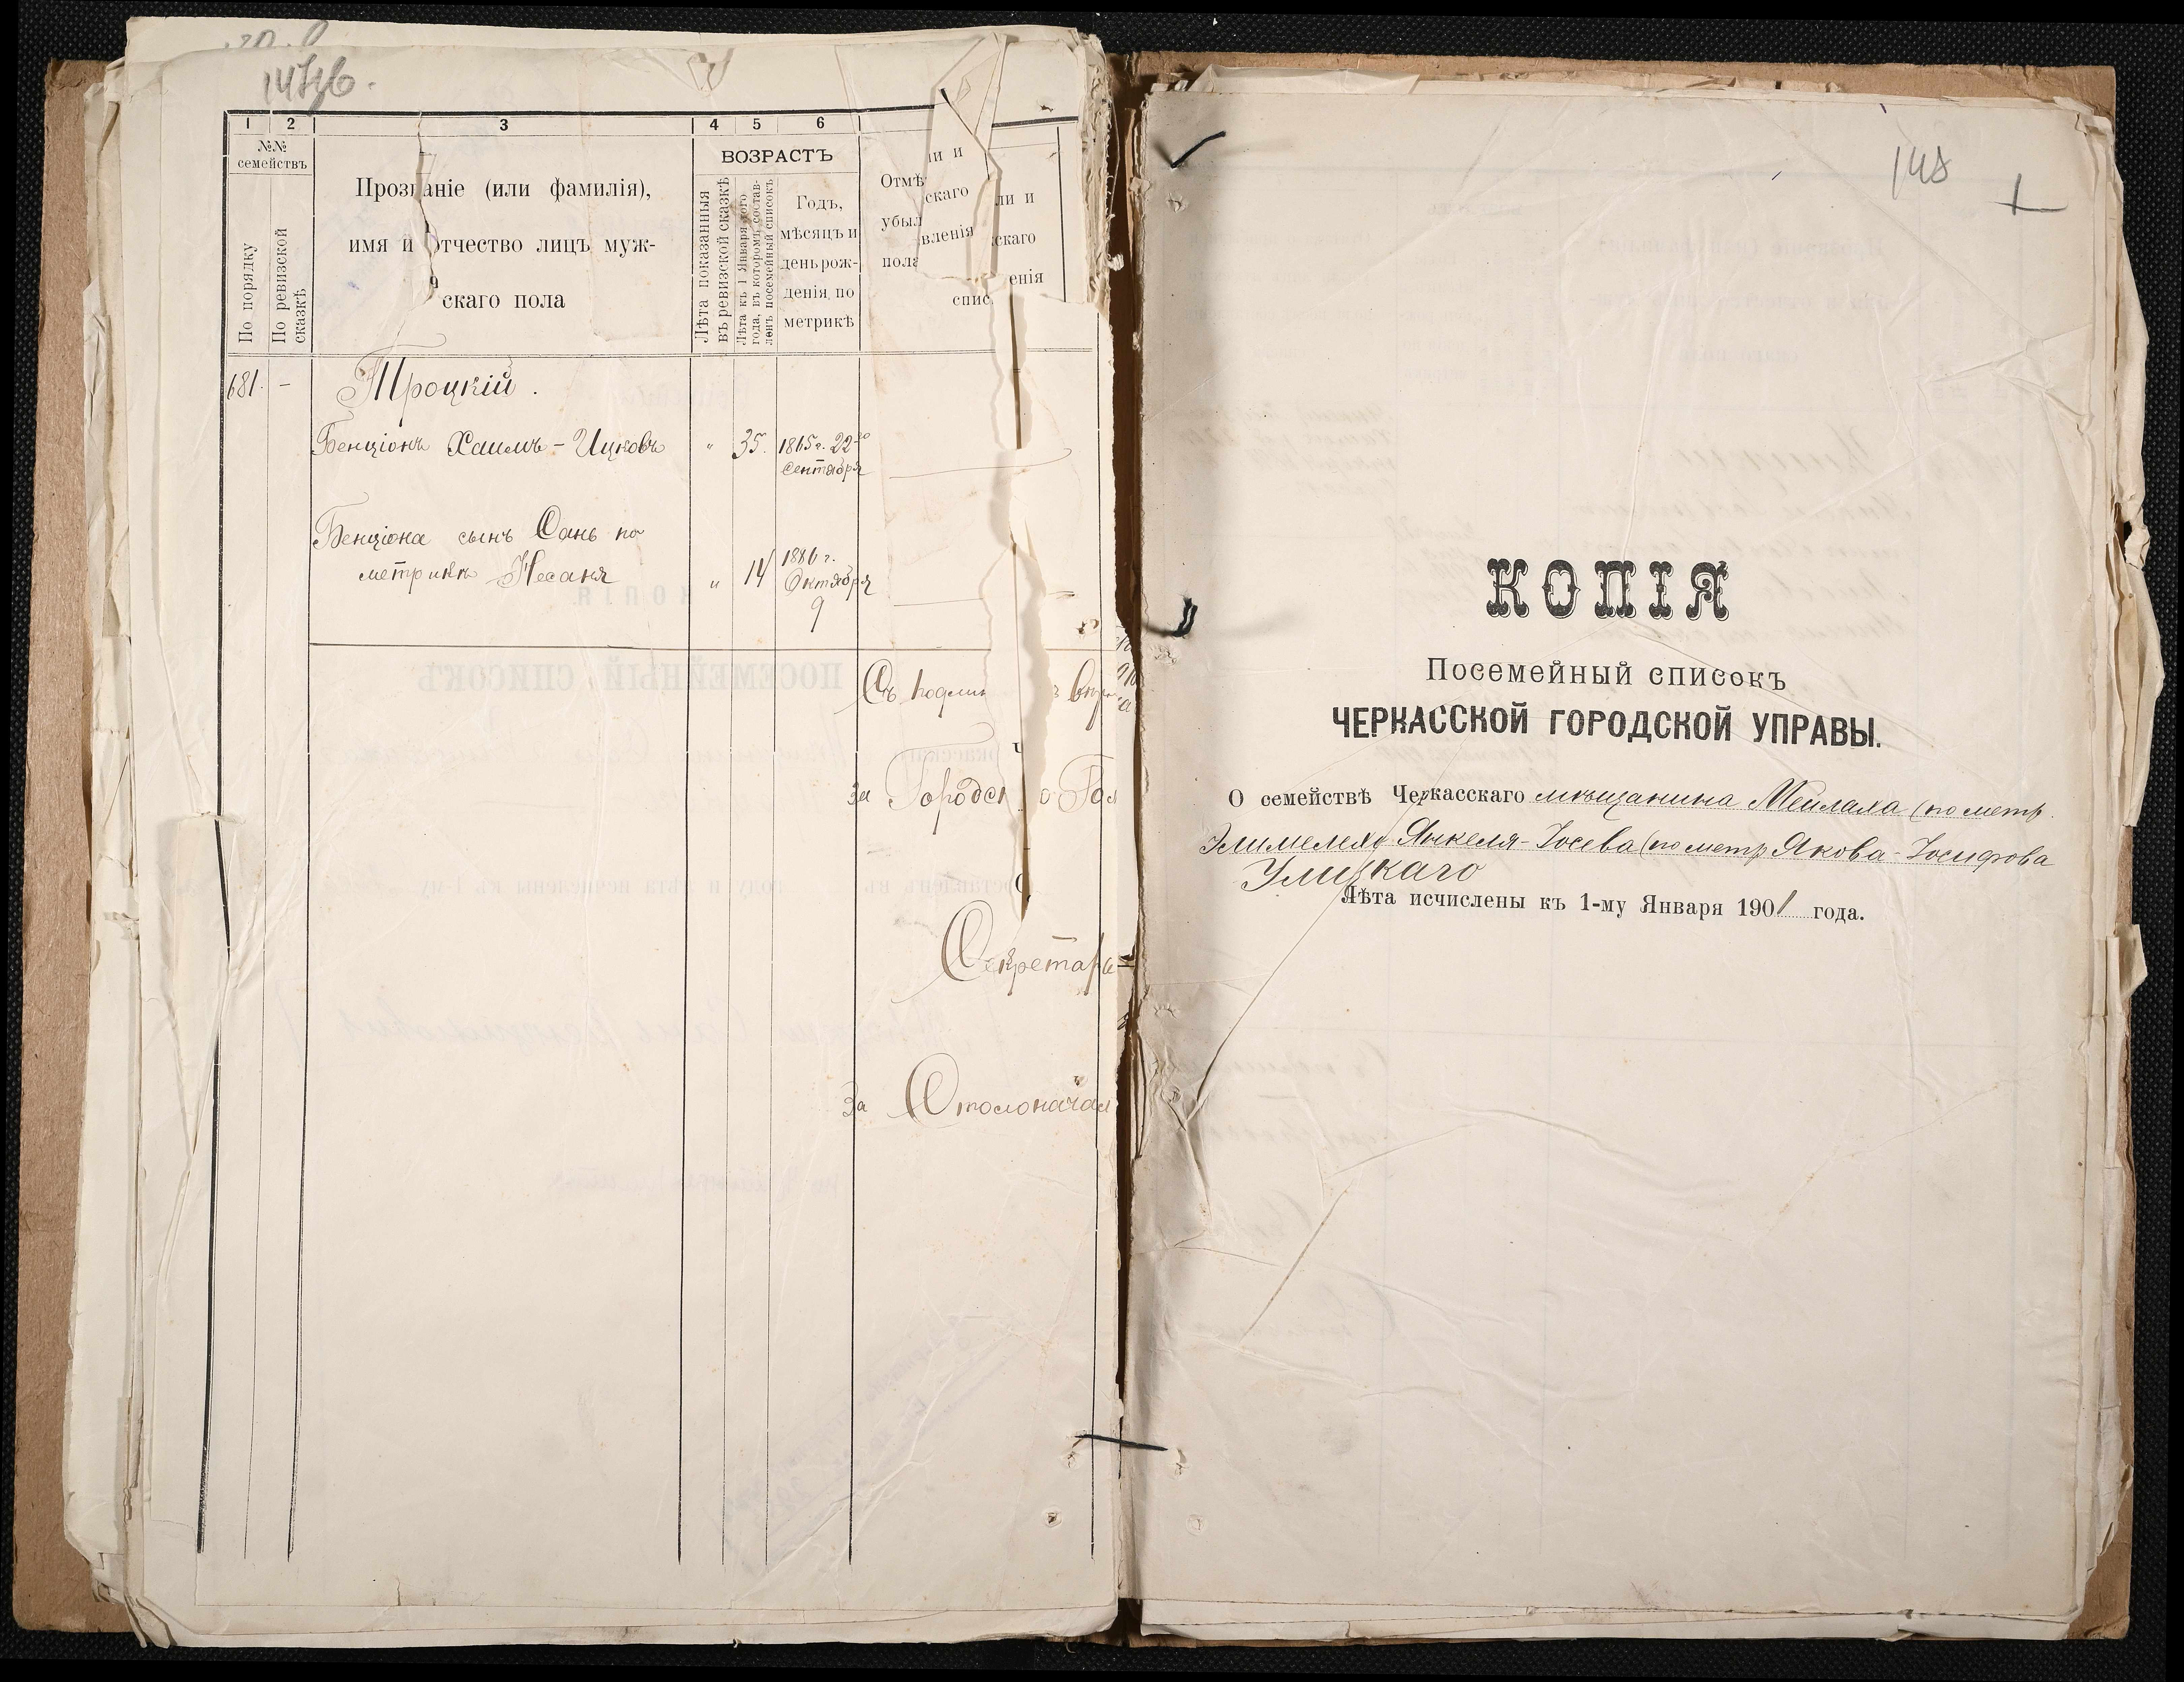 147 б.
1 2 3 4 5 6
№№ семействъ
По порядку
По ревизской сказкѣ
Прозваніе (или фамилія),
имя и отчество лицъ муж-
скаго пола
ВОЗРАСТЪ
Лѣта показанныя въ ревизской сказкѣ
Лѣта къ 1 Января того года, въ которомъ состав-ленъ посемейный списокъ
Годъ,
мѣсяцъ и
день рож-
денія, по
метрикѣ
Отмѣ
убыл
пола
спис
ли и
скаго
вленія
ли и
скаго
енія
681. - Троцкій.
Бенціонъ Хаимъ-Ицковъ " 35. 1865 г. 22-го
Сентября
Бенціона сынъ Сань по
метрикѣ Несаня " 14 1886 г.
Октября
9
Съ подлин
За Городск о Гол
Секретарь
За Столоначал
148
КОПІЯ
Посемейный списокъ
ЧЕРКАССКОЙ ГОРОДСКОЙ УПРАВЫ.
О семействѣ Черкасскаго мѣщанина Мейлаха (по метр.
Элимелех Янкеля-Іосева (по метр Якова-Іосифова
Улицкаго
Лѣта исчислены къ 1-му Января 1901 года.